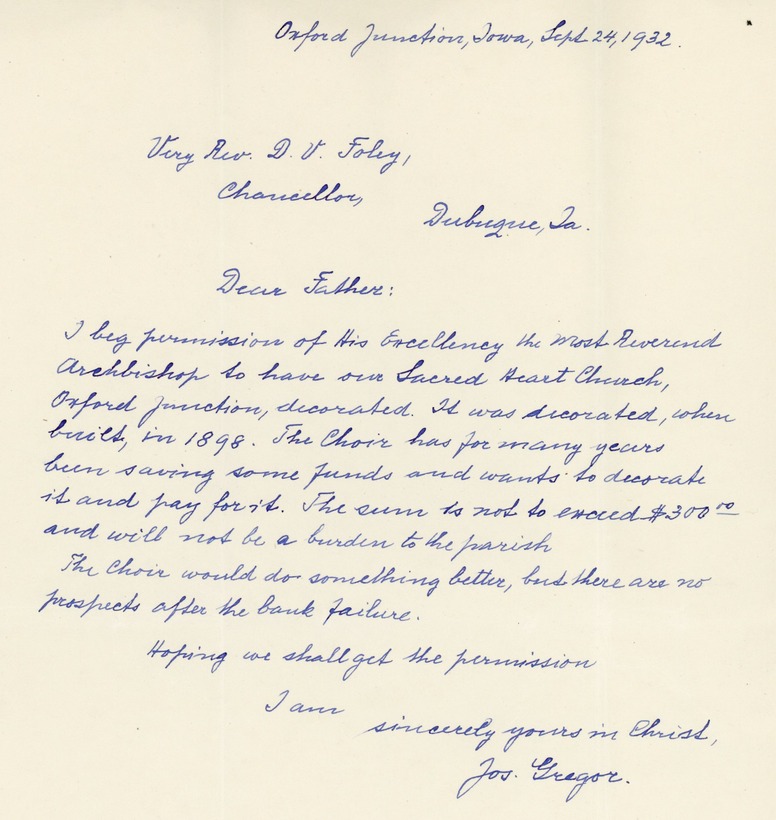 Oxford Junction, Iowa, Sept 24, 1932.
Very Rev. D. V. Foley,
Chancellor,
Dubuque, Ia.
Dear Father:
I beg permission of His Excellency the Most Reverend
Archbishop to have our Sacred Heart Church,
Oxford Junction, decorated. It was decorated, when
built, in 1898. The Choir has for many years
been saving some funds and wants to decorate
it and pay for it. The sum is not to exceed $300 00
and will not be a burden to the parish
The Choir would do something better, but there are no
prospects after the bank failure.
Hoping we shall get the permission
I am
sincerely yours in Christ,
Jos. Gregor.